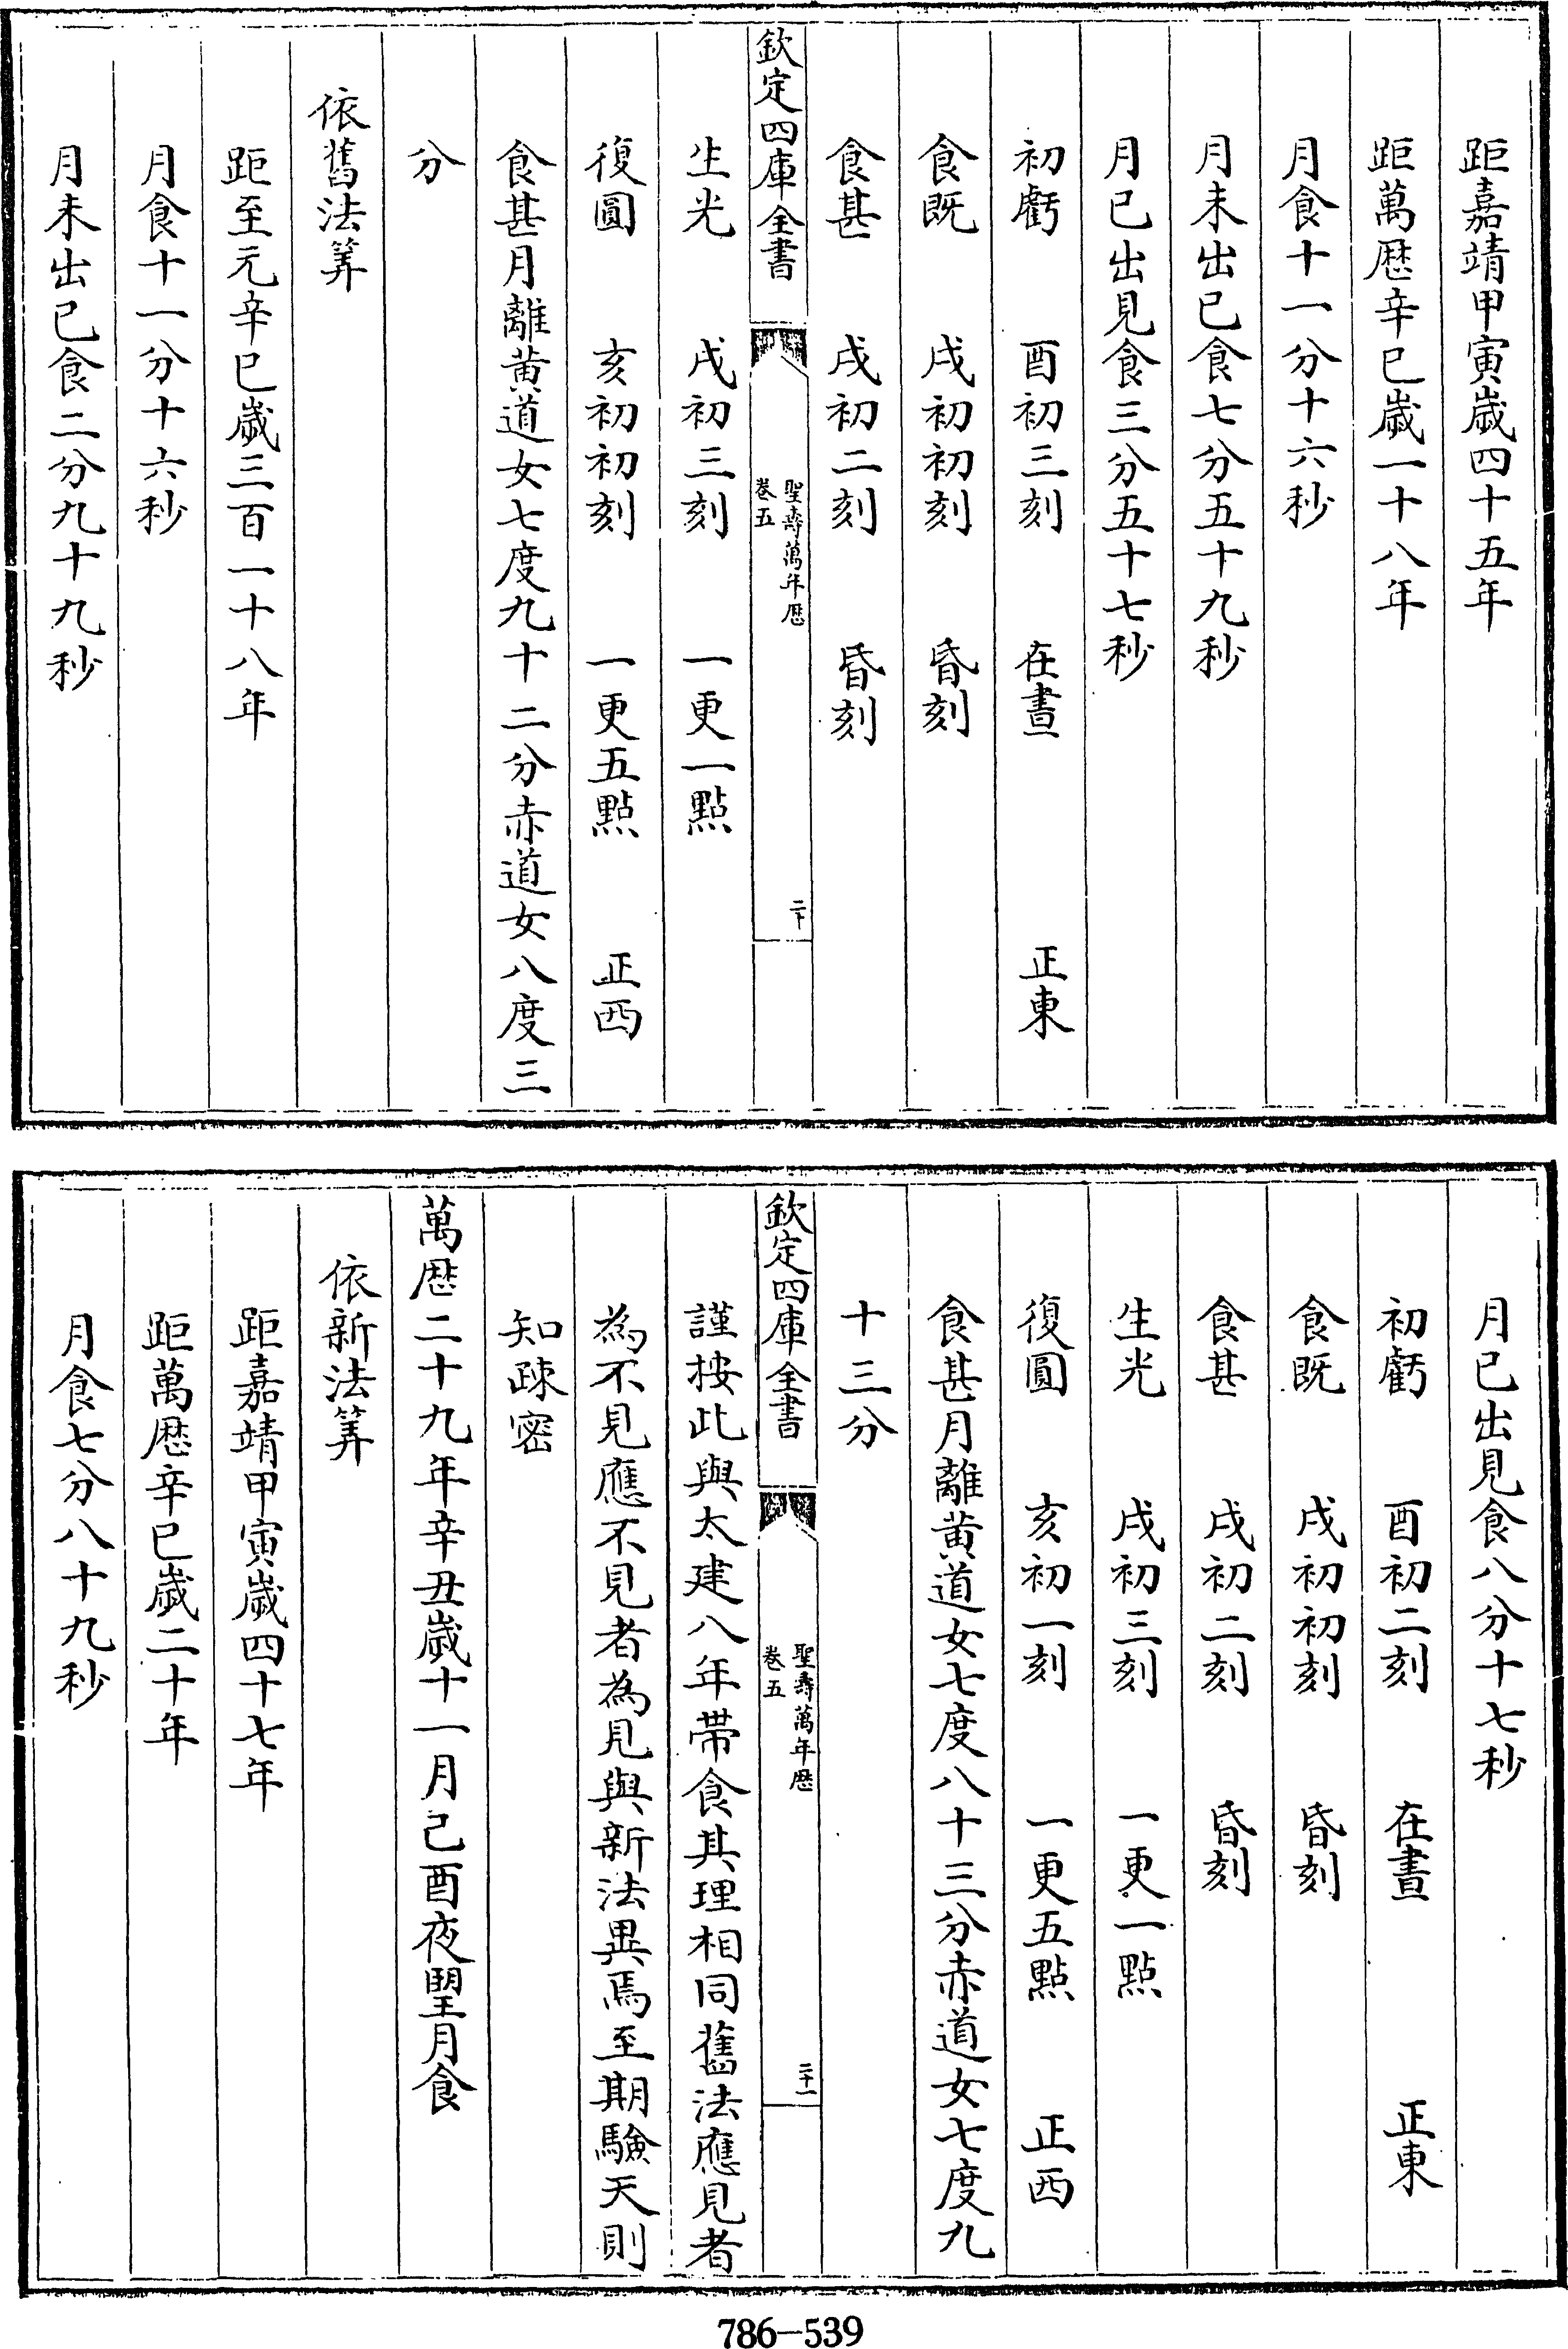 距嘉靖甲寅歲四十五年
距萬厯辛巳歲一十八年
月食十一分十六秒
月未出已食七分五十九秒
月已出見食三分五十七秒
初虧 酉初三刻 在晝 正東
食既 戌初初刻 昏刻
食甚 戌初二刻 昏刻
欽定四庫全書 聖壽萬年厯 卷五 二十
生光 戌初三刻 一更一點
復圓 亥初初刻 一更五點 正西
食甚月離黃道女七度九十二分赤道女八度三
分
依舊法筭
距至元辛巳歲三百一十八年
月食十一分十六秒
月未出已食二分九十九秒
月已出見食八分十七秒
初虧 酉初二刻 在晝 正東
食既 戌初初刻 昏刻
食甚 戌初二刻 昏刻
生光 戌初三刻 一更一點
復圓 亥初一刻 一更五點 正西
食甚月離黃道女七度八十三分赤道女七度九
十三分
欽定四庫全書 聖壽萬年厯 卷五 二十一
謹按此與太建八年帶食其理相同舊法應見者
為不見應不見者為見與新法異焉至期驗天則
知疎密
萬厯二十九年辛丑歲十一月己酉夜望月食
依新法筭
距嘉靖甲寅歲四十七年
距萬厯辛巳歲二十年
月食七分八十九秒
786-539